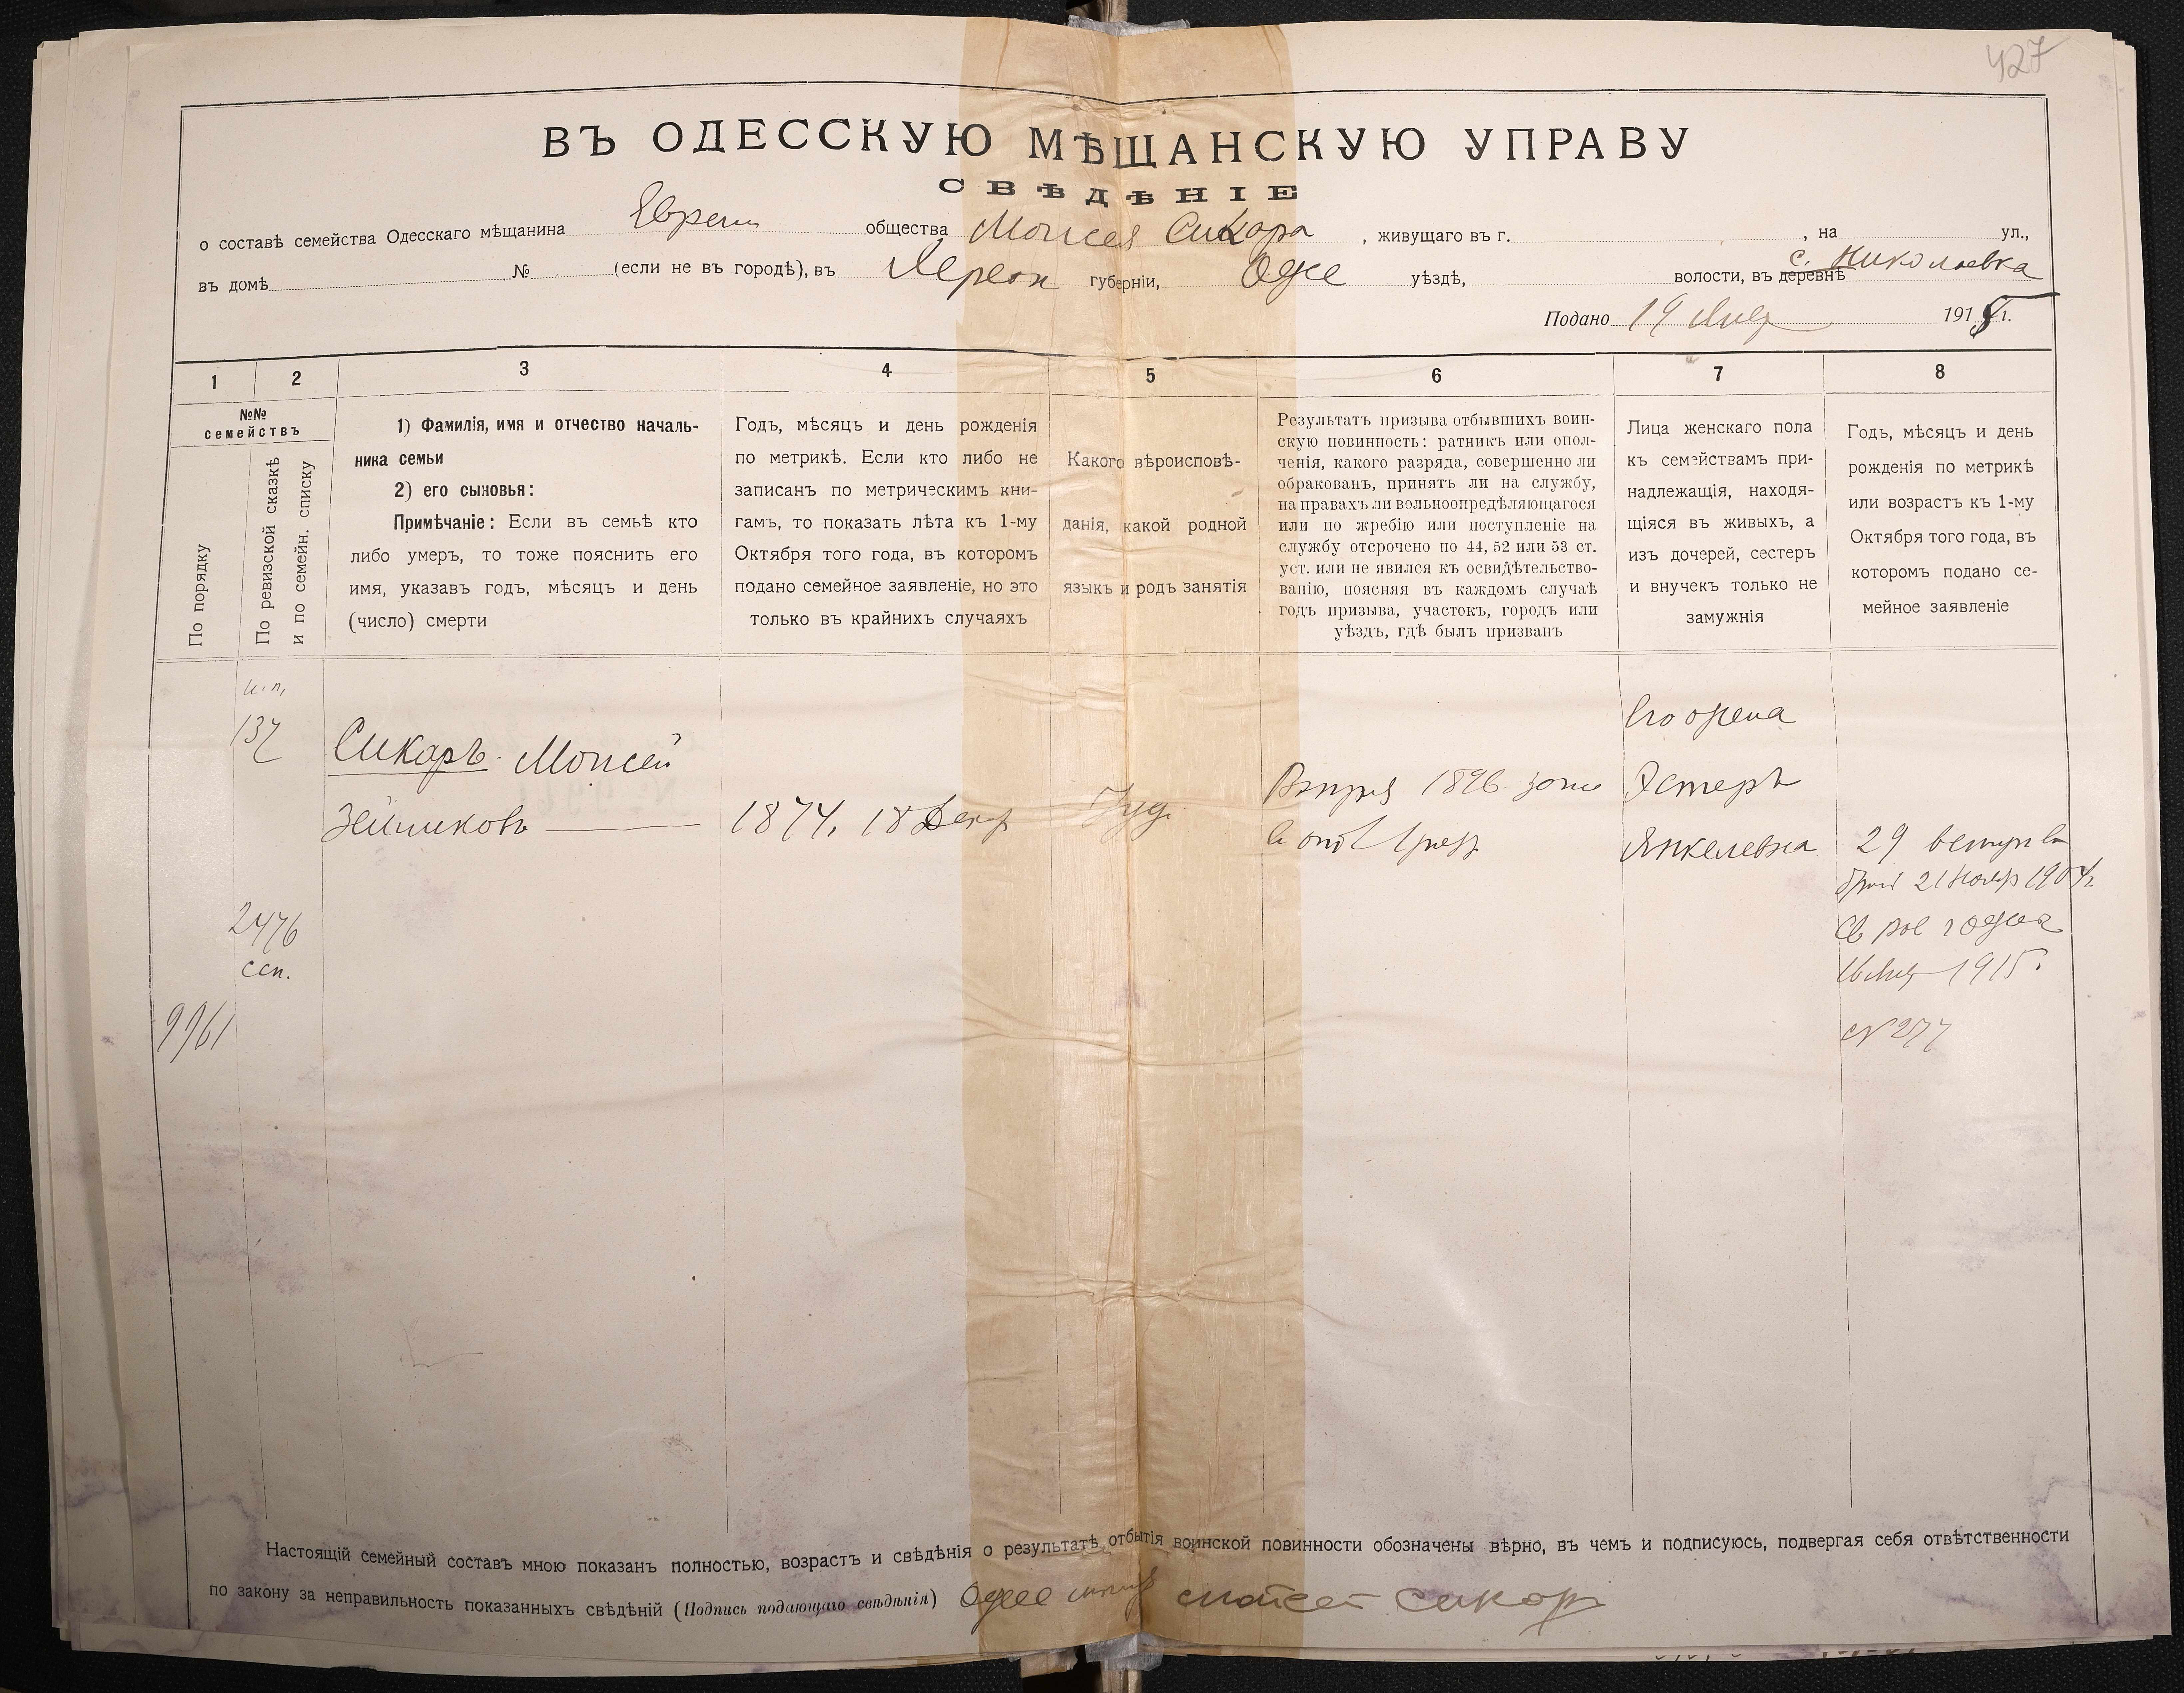 427
ВЪ ОДЕССКУЮ МѢЩАНСКУЮ УПРАВУ
СВѢДѢНІЕ
о составѣ семейства Одесскаго мѣщанина Еврейск общества Моисея Сикара, живущаго въ г. , на ул.,
въ домѣ № (если не въ городѣ), въ Херсон губерніи, Одес уѣздѣ, волости, въ деревнѣ с. Николаевка
Подано 19 191 г.
1 2 3 4 5 6 7 8
№№ семействъ
По порядку
По ревизской сказкѣ
и по семейн. списку
1) Фамилія, имя и отчество началь-
ника семьи
2) его сыновья:
Примѣчаніе: Если въ семьѣ кто
либо умеръ, то тоже пояснить его
имя, указавъ годъ, мѣсяцъ и день
(число) смерти
Годъ, мѣсяцъ и день рожденія
по метрикѣ. Если кто либо не
записанъ по метрическимъ кни-
гамъ, то показать лѣта къ 1-му
Октября того года, въ которомъ
подано семейное заявленіе, но это
только въ крайнихъ случаяхъ
Какого вѣроисповѣ-
данія, какой родной
языкъ и родъ занятія
Результатъ призыва отбывшихъ воин-
скую повинность: ратникъ или опол-
ченія, какого разряда, совершенно ли
обракованъ, принятъ ли на службу,
на правахъ ли вольноопредѣляющагося
или по жребію или поступленіе на
службу отсрочено по 44, 52 или 53 ст.
уст. или не явился къ освидѣтельство-
ванію, поясняя въ каждомъ случаѣ
годъ призыва, участокъ, городъ или
уѣздъ, гдѣ былъ призванъ
Лица женскаго пола
къ семействамъ при-
надлежащія, находя-
щіяся въ живыхъ, а
изъ дочерей, сестеръ
и внучекъ только не
замужнія
Годъ, мѣсяцъ и день
рожденія по метрикѣ
или возрастъ къ 1-му
Октября того года, въ
которомъ подано се-
мейное заявленіе
137
Сикаръ Моисей
Зейликовъ
1874, 18 Декаб
Іуд
1896
Его жена
Эстеръ
Янкелевна
29 вступ въ
бракъ 21 Нояб 1904 г.
1915
№ 277
2476
ссп.
9961
Настоящій семейный составъ мною показанъ полностью, возрастъ и свѣдѣнія о результатѣ отбытія воинской повинности обозначены вѣрно, въ чемъ и подписуюсь, подвергая себя отвѣтственности
по закону за неправильность показанныхъ свѣдѣній (Подпись подающаго свѣдѣнія) Сикар